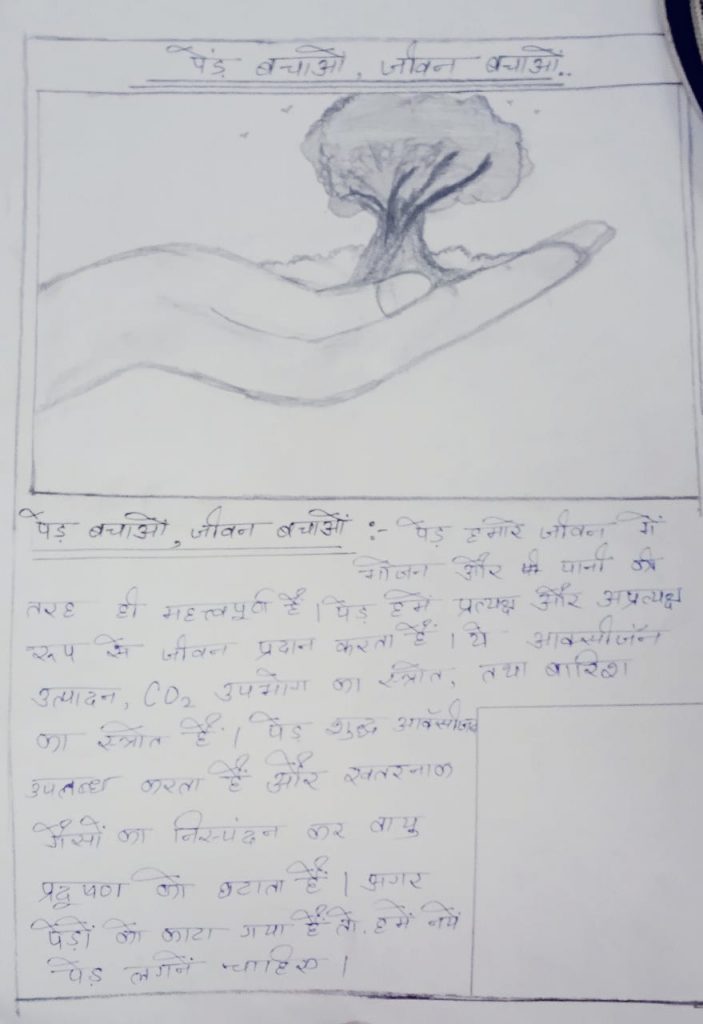 पेंड़ बचाओं, जीवन बचाओं..
पेड़ बचाओं, जीवन बचाओं :- पेड़ हमारे जीवन में
भोजन और पानी की
तरह ही महत्वपूर्ण है। पेड़ हमें प्रत्यक्ष और अप्रत्यक्ष
रूप से जीवन प्रदान करता हैं। ये आक्सीजॅन
उत्पादन, CO2 उपभोग का स्त्रोत, तथा बारिश
का स्त्रोत हैं। पेड़ शुद्ध आक्सीजन
उपलब्ध करता हैं और खतरनाक
गैसों का निस्पंदन कर वायु
प्रदूषण को घटाता हैं। अगर
पेंड़ों को काटा गया हैं तो, हमें नयें
पेड़ लगानें चाहिए।